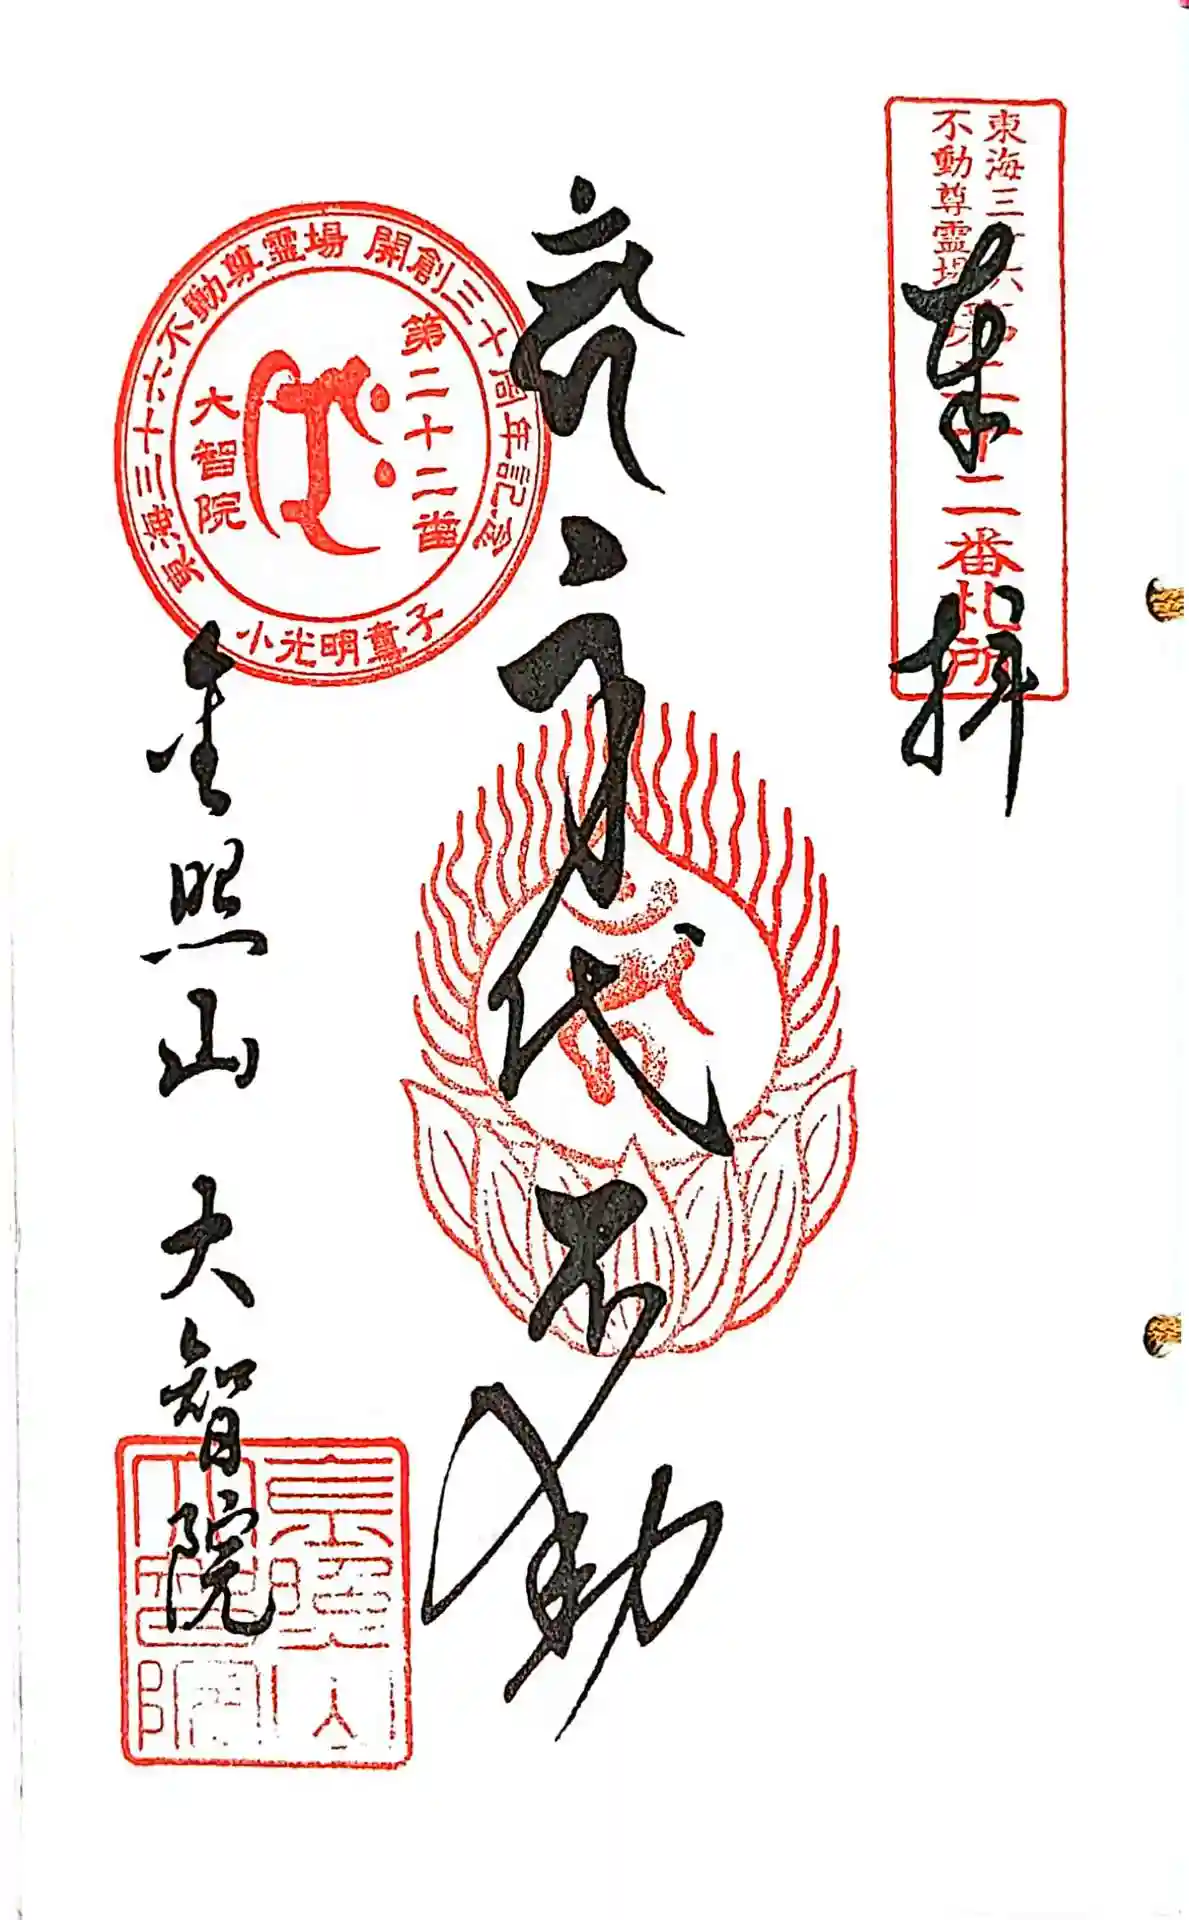 東海三十六
不動尊霊場
第二十二番札所
奉拝
身代不動
東海三十六不動尊霊場 開創三十周年記念
第二十二番
大智院
小光明童子
金照山 大智院
金照山
大智院